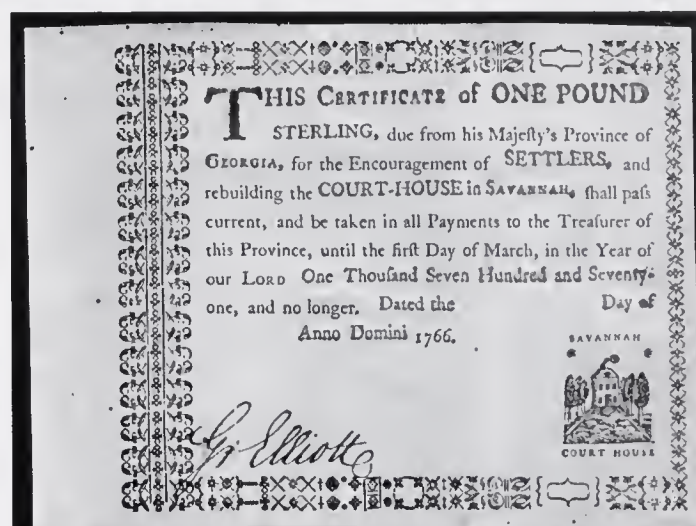 THIS CERTIFICATE of ONE POUND
STERLING, due from his Majeſty's Province of
GEORGIA, for the Encouragement of SETTLERS, and
rebuilding the COURT-HOUSE in SAVANNAH, ſhall paſs
current, and be taken in all Payments to the Treaſurer of
this Province, until the firſt Day of March, in the Year of
our LORD One Thouſand Seven Hundred and Seventy-
one, and no longer. Dated the Day of
Anno Domini 1766.
SAVANNAH
COURT HOUSE
Gr Elliott